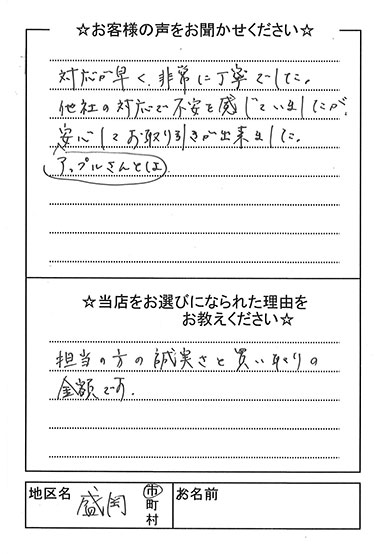 ☆お客様の声をお聞かせください☆
対応が早く、非常に丁寧でした。
他社の対応で不安を感じていましたが、
安心してお取り引きが出来ました。
アップルさんとは
☆当店をお選びになられた理由を
お教えください☆
担当の方の誠実さと買い取りの
金額です。
地区名 盛岡 市
町
村
お名前